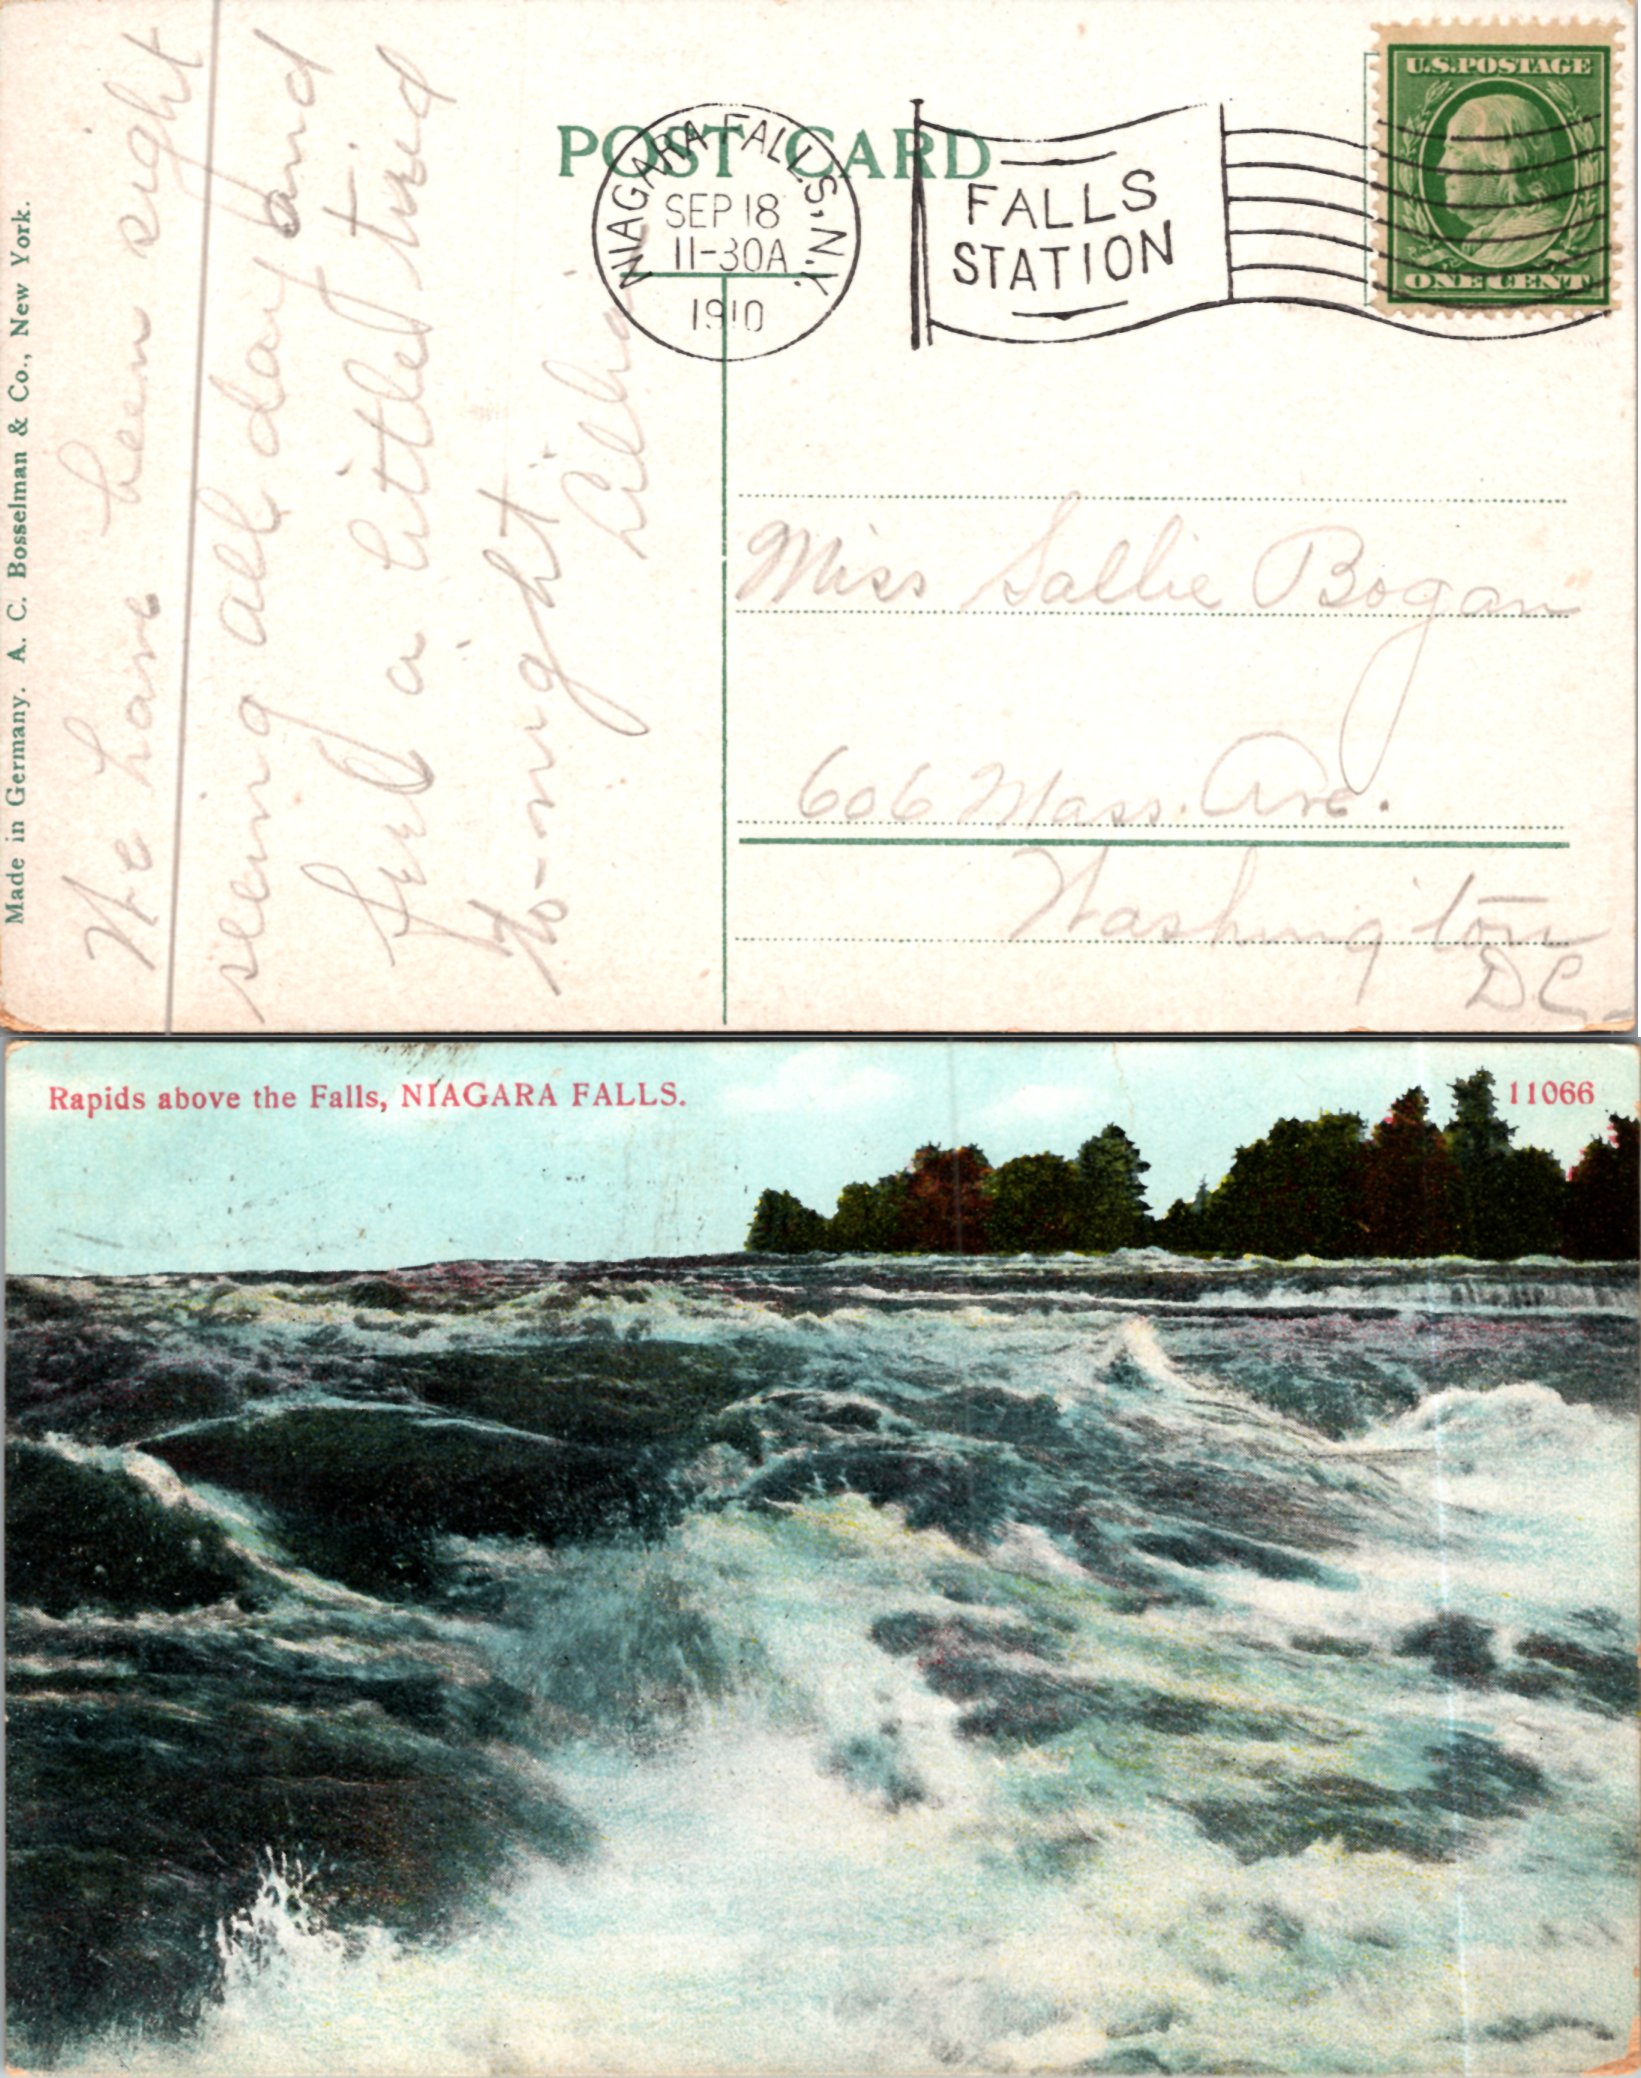 Made in Germany. A. C. Bosselman & Co., New York.
We have been sight
seeing all day and
feel a little tired
to-night.
POST CARD
NIAGARA FALLS, N.Y.
SEP 18
11-30A
1910
FALLS
STATION
U.S. POSTAGE
ONE CENT
Miss Sallie Bogan
606 Mass. Ave.
Washington
D.C.
Rapids above the Falls, NIAGARA FALLS.
11066